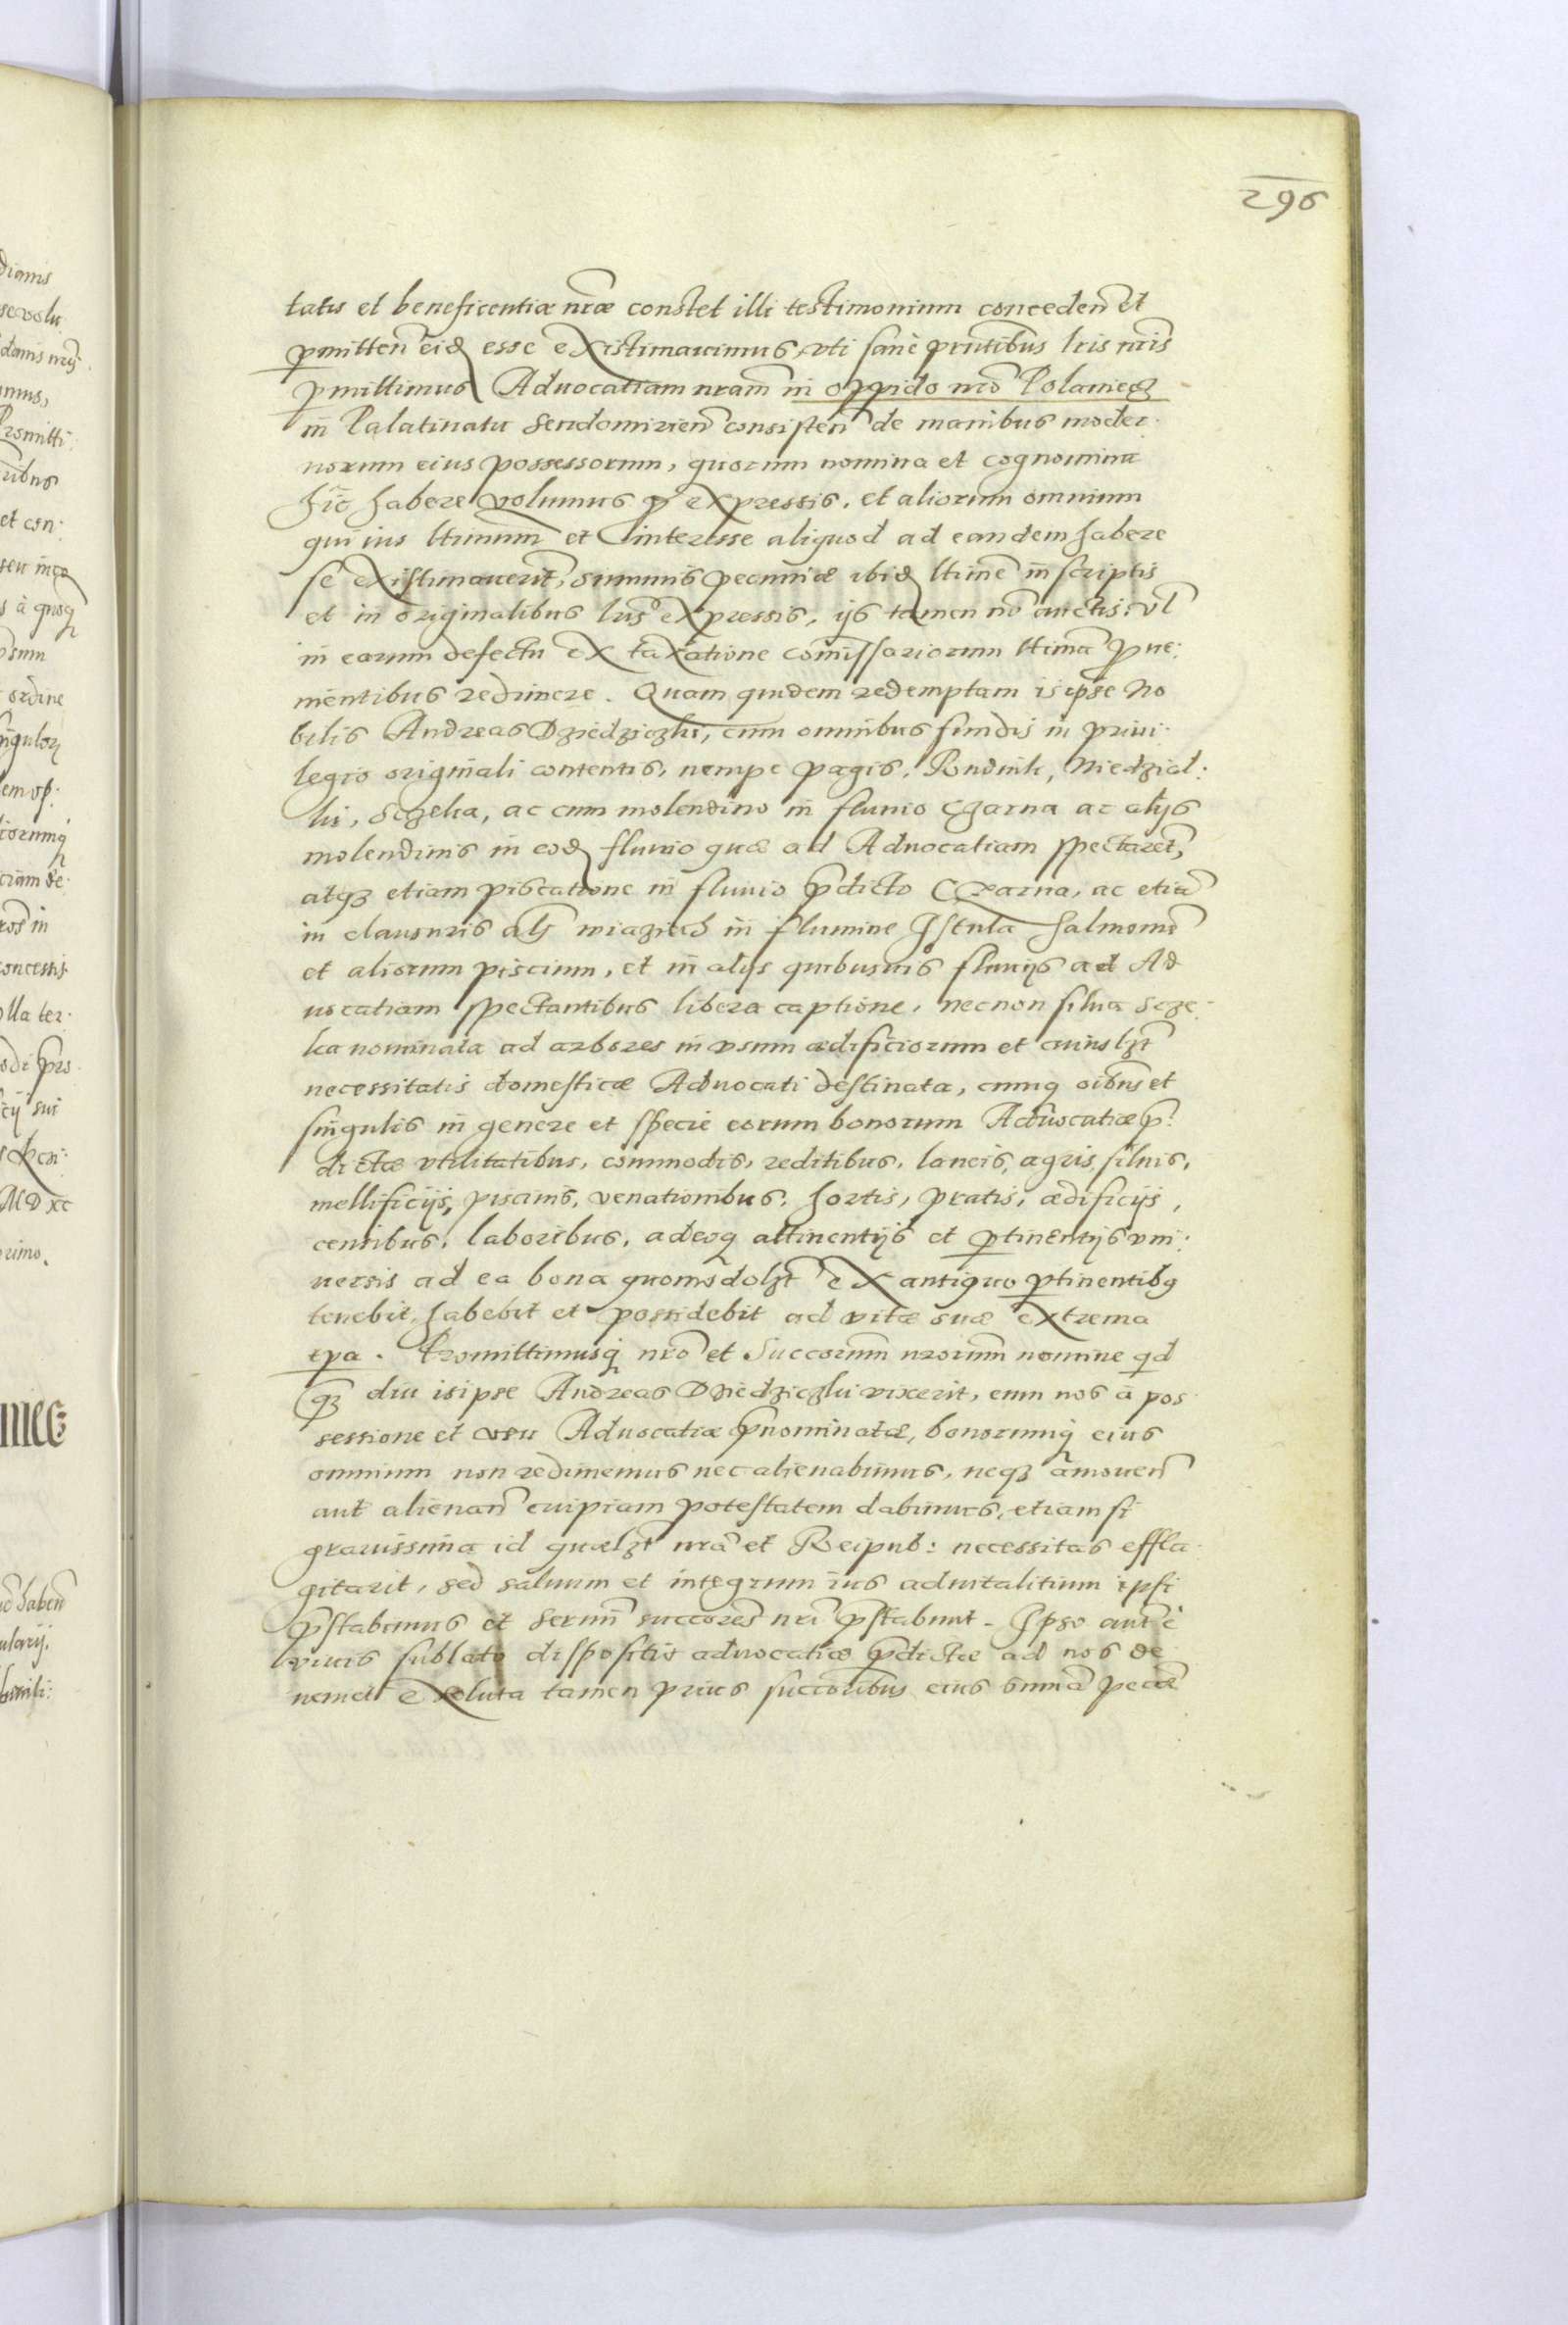 296
tatis et beneficentiæ nr̃æ constet illi testimonium conceden̄ et
p̱mitten̄ eid̨ esse existimavimus, vti sanè prn̄tibus lr̃is nr̃is
p̱mittimus Advocatiam nram̄ in oppido nr̃o Polaniecz
in Palatinatu Sendomirien̄ consisten̄ de manibus moder:
norum eius possessorum, quorum nomina et cognomina
hic̄ habere volumus p expressis, et aliorum omnium
qui ius ltimum̄ et interesse aliquod ad eandem habere
se existimaverit̄, summis pecuniæ ibid̨ ltime in scriptis
et in originalibus lr̃is expressis, ijs tamen nō auctis, vl̄
in earum defectu ex taxatione comissariorum ltimā p̱ue:
nientibus redimere. Quam quidem redemptam is ipse No
bilis Andreas Dziedziczki, cum omnibus fundis in privi:
legio originali contentis, nempe pagis, Rudnik, Niedzial:
ki, Szczeka, ac cum molendino in fluvio Czarna ac alijs
molendinis in eod̨ fluvio quæ ad Advocatiam spectarēt,
atq̨ etiam piscatione in fluvio p̄dicto Czarna, ac etiā
in clausuris als̄ wiaziech in flumine Istula Salmonū
et aliorum piscium, et in alijs quibusvis fluvijs ad Ad
vocatiam spectantibus libera captione, necnon silva Szcze:
ka nominata ad arbores in vsum ædificiorum et cuiuslzt̄
necessitatis domesticæ Advocati destinata, cumq̨ oib̄us et
singulis in genere et specie eorum bonorum Advocatiæ p̄:
dictæ vtilitatibus, commodis, reditibus, laneis, agris, silvis,
mellificijs, piscinis, venationibus, hortis, pratis, ædificijs,
censibus, laboribus, adeoq̨ attinentijs et p̱tinentijs vni:
versis ad ea bona quomodolzt̄ ex antiquo p̱tinentibq̨
tenebit, habebit et possidebit ad vitæ suæ extrema
tp̄a. Promittimusq̨ nr̄o et Succorum̄ nrorum̄ nomine qd̄
q̄z diu is ipse Andreas Dziedziczki vixerit, eum nos à pos
sessione et vsu Advocatiæ p̄nominatæ, bonorumq̨ eius
omnium non redimemus nec alienabimus, neq̨ amoven̄
aut alienan̄ cuipiam potestatem dabimus, etiam si
gravissima id quælzt̄ nr̄a et Reipub: necessitas effla:
gitarit, sed salvum et integrum ius advitalitium ipsi
p̄stabimus et Serm̄i succores̄ nr̄i p̄stabunt. Ipso aut̄ è
vivis sublato dispositio advocatiæ p̄dictæ ad nos de
veniet exoluta tamen prius successoribus eius summā pecǣ